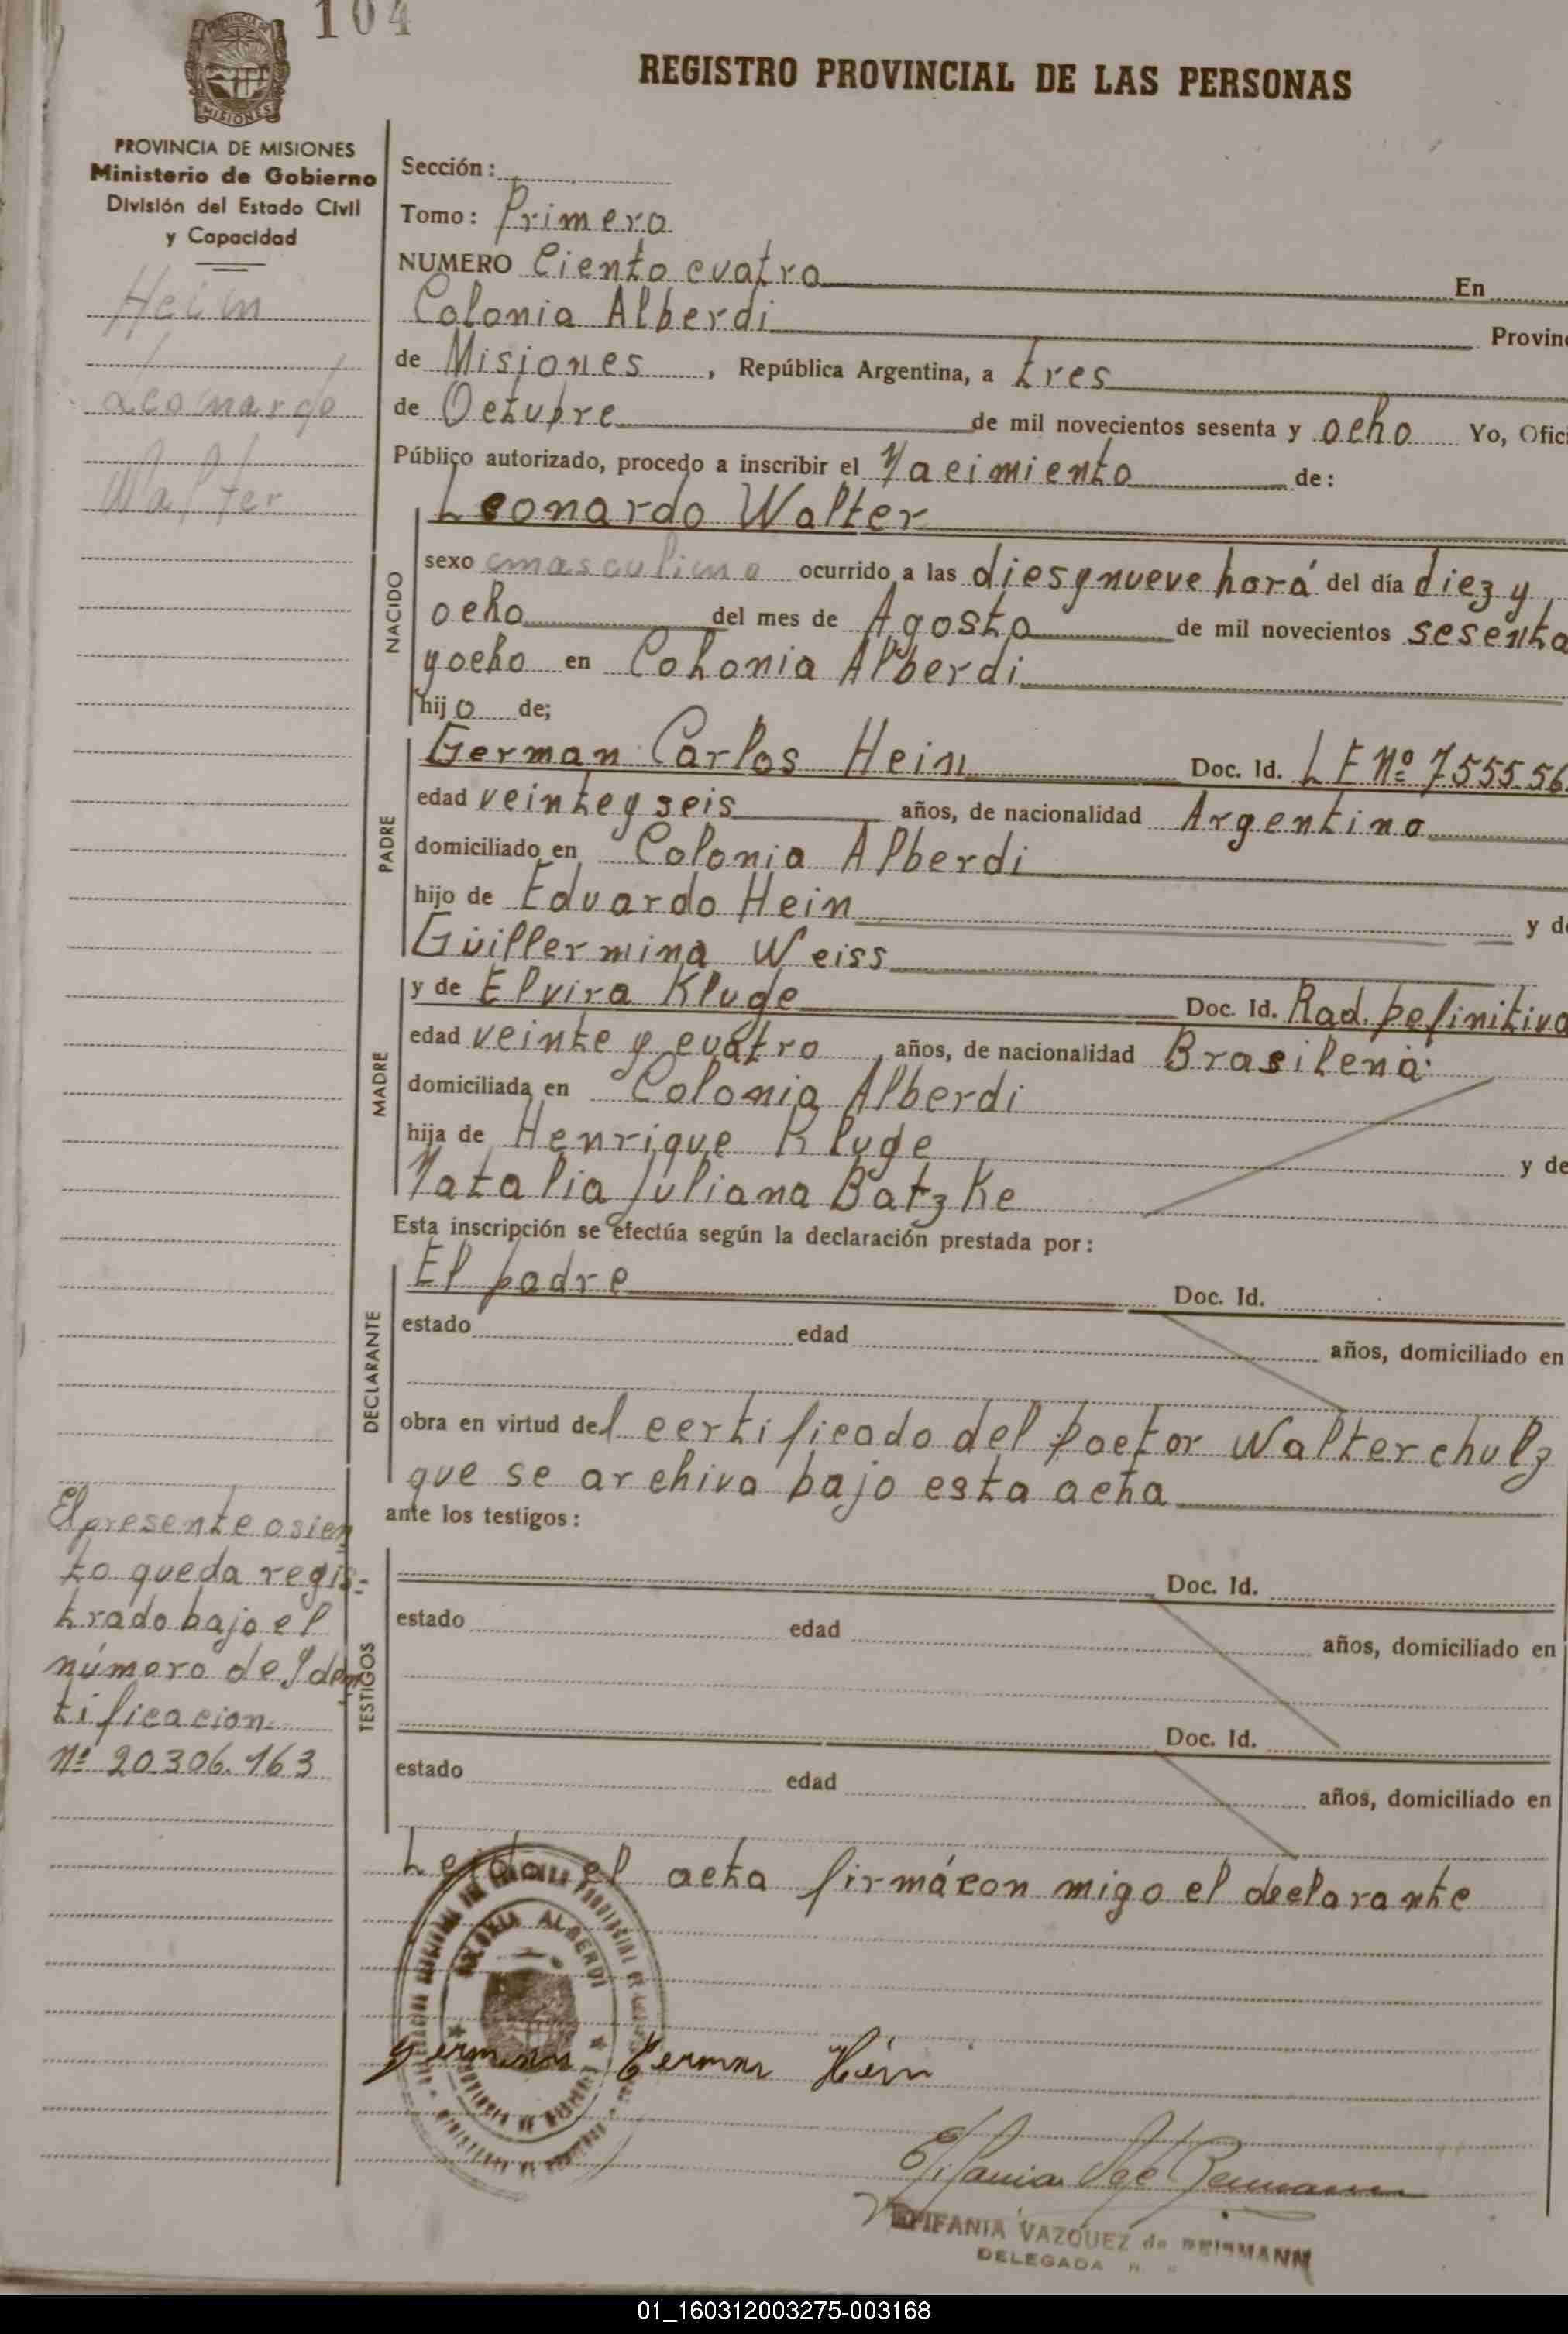 104
REGISTRO PROVINCIAL DE LAS PERSONAS
PROVINCIA DE MISIONES
Ministerio de Gobierno
División del Estado Civil
y Capacidad
Hein
Leonardo
Walter
Sección:
Tomo: Primero
NUMERO Ciento cuatro En
Colonia Alberdi Provin
de Misiones, República Argentina, a tres
de Octubre de mil novecientos sesenta y ocho Yo, Ofici
Público autorizado, procedo a inscribir el Nacimiento de:
Leonardo Walter
NACIDO
sexo masculino ocurrido a las diesynueve horá del día diez y
ocho del mes de Agosto de mil novecientos sesenta
y ocho en Colonia Alberdi
hijo de;
PADRE
German Carlos Hein Doc. Id. L E Nº 7555.56
edad veinte y seis años, de nacionalidad Argentino
domiciliado en Colonia Alberdi
hijo de Eduardo Hein y d
Guillermina Weiss
MADRE
y de Elvira Kluge Doc. Id. Rad. Definitiva
edad veinte y cuatro, años, de nacionalidad Brasilena
domiciliada en Colonia Alberdi
hija de Henrique Kluge y de
Natalia Juliana Batzke
Esta inscripción se efectúa según la declaración prestada por:
DECLARANTE
El padre Doc. Id.
estado edad años, domiciliado en
obra en virtud del certificado del Pactor Walter chulz
que se archiva bajo esta acta
ante los testigos:
TESTIGOS
Doc. Id.
estado edad años, domiciliado en
Doc. Id.
estado edad años, domiciliado en
El presente asien
to queda regis-
trado bajo el
número de Iden
tificacion
Nº 20.306.163
Leida el acta firmácon migo el declarante
COLONIA ALBERDI
German German Hein
EPIFANIA VAZQUEZ de REISMANN
DELEGADA
01_160312003275-003168